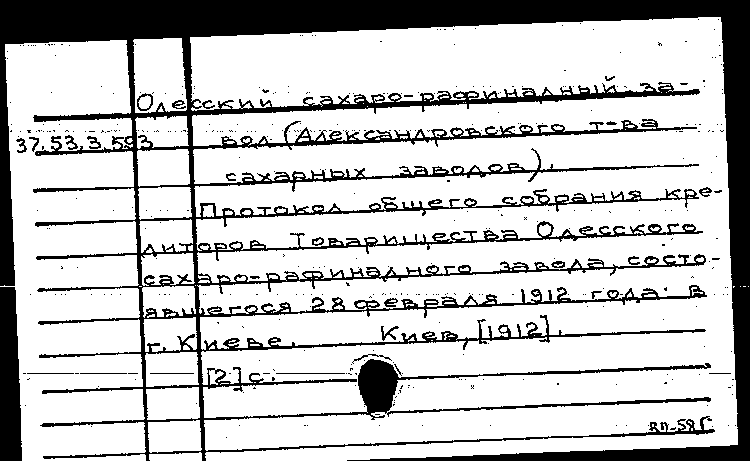 Одесский сахаро-рафинадный за-
37.53.3.593 вод (Александровского т-ва
сахарных заводов).
Протокол общего собрания кре-
диторов Товарищества Одесского
сахаро-рафинадного завода, состо-
явшегося 28 февраля 1912 года в
г. Киеве. Киев, [1912].
[2] с.